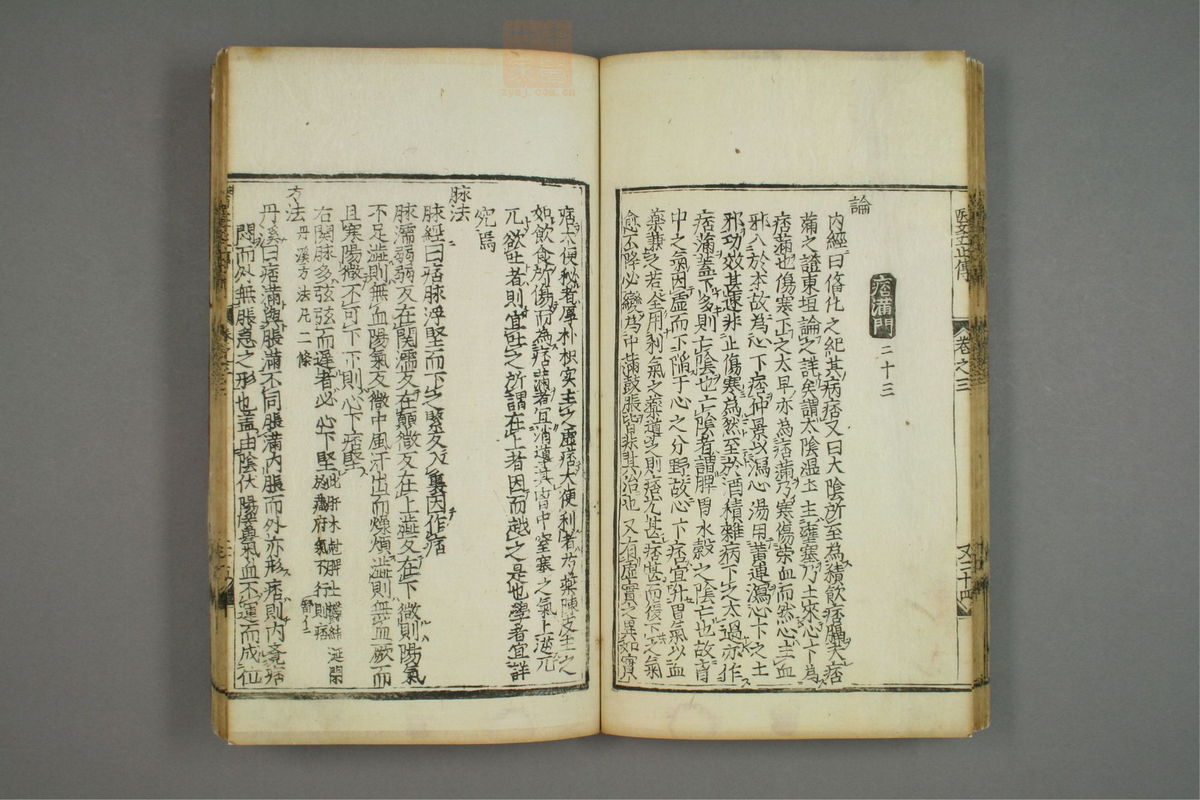 醫學正傳
卷之三
又三十四
痞滿門
二十三
論
内經曰備化之紀其病痞又曰太陰所至為積飲痞膈夫痞
滿之證東垣論之詳矣謂太陰湿土主壅塞乃土來心下為
痞滿也傷寒下之太早亦為痞滿乃寒傷榮血而然心主血
邪入於本故為心下痞仲景以瀉心湯用黄連瀉心下之土
邪功效甚速非止傷寒為然至於酒積雜病下之太過亦作
痞滿蓋下多則亡陰也亡陰者謂脾胃水穀之陰亡也故胷
中之氣因虚而下陥于心之分野故心下痞宜升胃氣以血
藥兼之若全用利氣之藥導之則痞尤甚痞甚而復下之氣
愈下降必變為中滿鼓脹皆非其治也又有虚實之異如實
痞大便秘者厚朴枳实主之虚痞大便利者芍藥陳皮主之
如飲食所傷而為痞滿者宜消導其胷中窒塞之氣上逆元
兀欲吐者則宜吐之所謂在上者因而越之是也學者宜詳
究焉
脉法
脉經曰痞脉浮堅而下之緊反入裏因作痞
脉濡弱弱反在関濡反在顛微反在上澁反在下微則陽氣
不足澁則無血陽氣反微中風汗出而燥煩澁則無血厥而
且寒陽微不可下下則心下痞堅
右関脉多弦弦而遲者必心下堅此肝木尅脾土欝結涎閉於藏府氣不行則痞
方法丹溪方法凡二條
丹溪曰痞滿與脹滿不同脹滿内脹而外亦形痞則内覺痞
悶而外無脹急之形也蓋由陰伏陽蓄氣血不運而成位
zyoj.com.cn